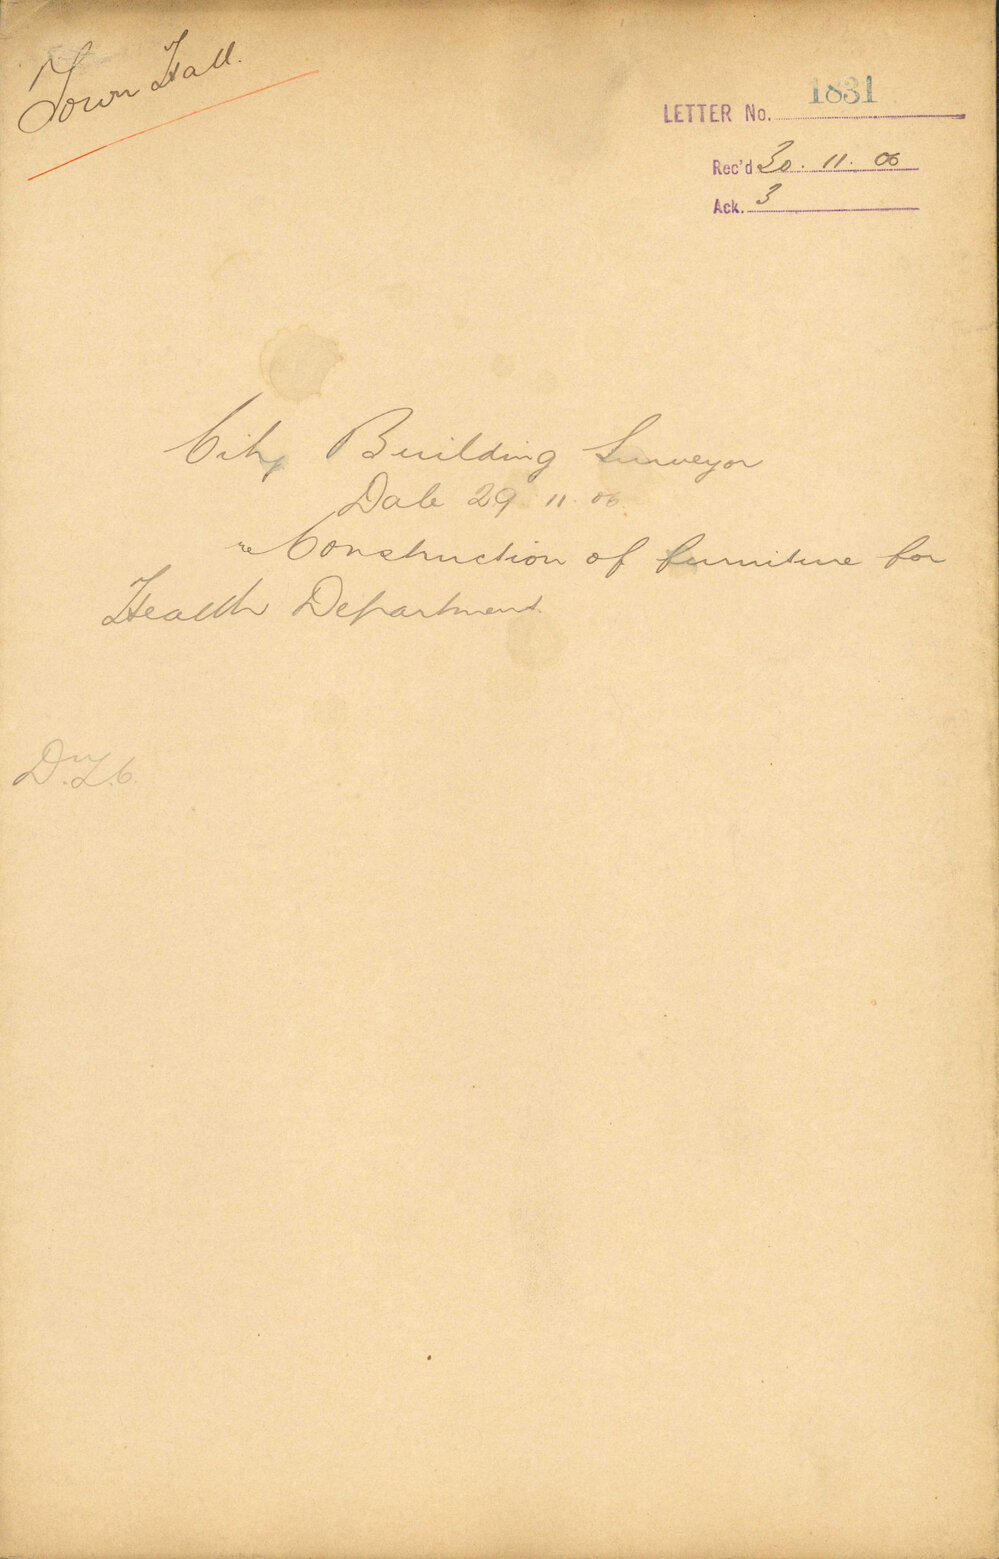 Town Hall.
LETTER No. 1831
Rec'd 30. 11. 06
Ack. 3
City Building Surveyor
Date 29 11. 06
re Construction of furniture for
Health Department